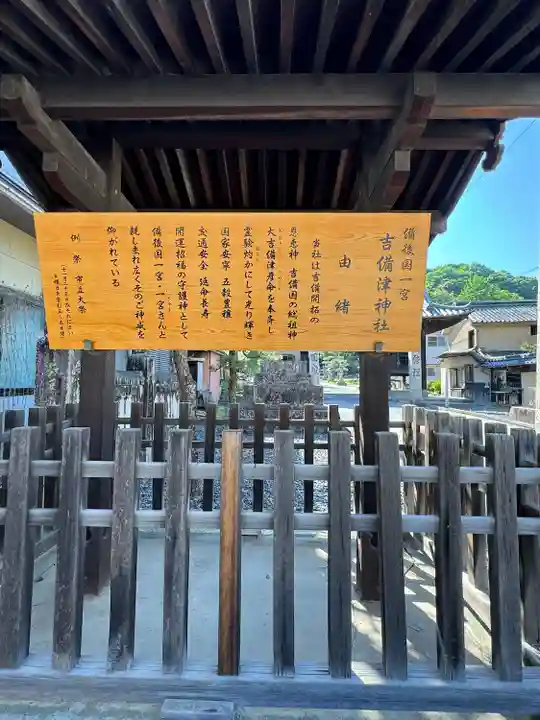 備後国一宮
吉備津神社
由緒
当社は吉備開拓の
恩恵神 吉備国の総祖神
大吉備津彦命を奉斉し
霊験灼かにして光り輝き
国家安寧 五穀豊穣
交通安全 延命長寿
開運招福の守護神として
備後国一宮・一宮さんと
親しまれ広くそのご神威を
仰がれている
例祭 市立大祭